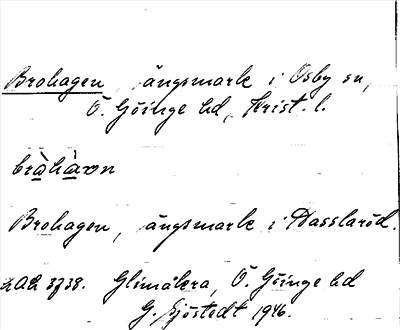 Brohagen, ängsmark i Osby sn,
Ö. Göinge hd, Krist. l.
bråhàvn
Brohagen, ängsmark i Hasslaröd.
LAL 3738. Glimåkra, Ö. Göinge hd
G. Sjöstedt 1946.